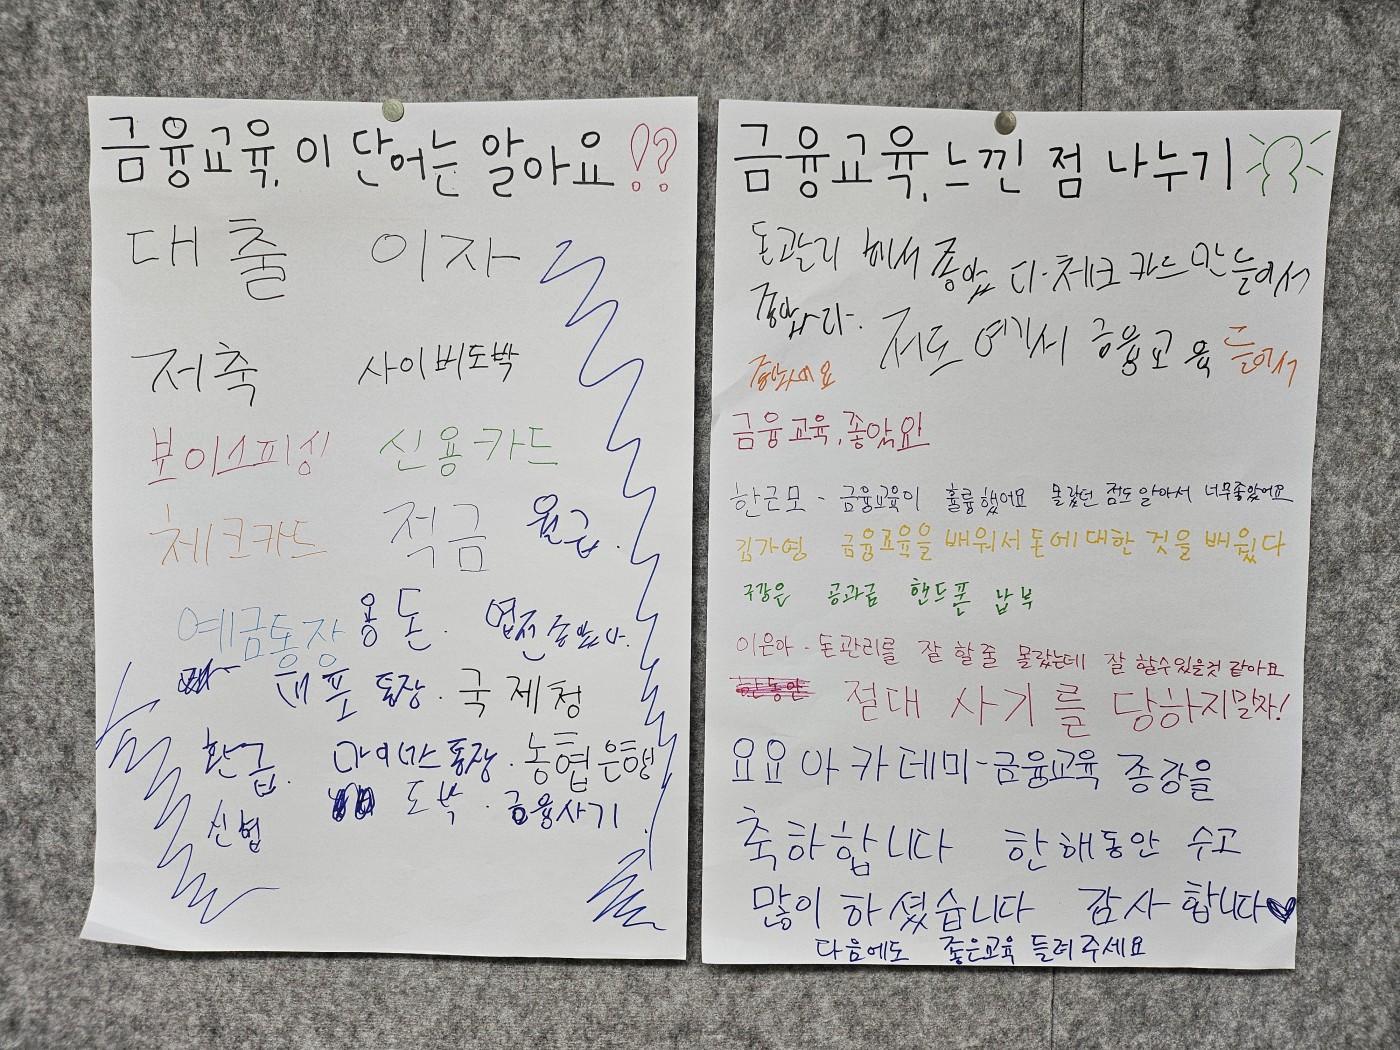 금융교육, 이 단어는 알아요!?
대출 이자
저축 사이버도박
보이스피싱 신용카드
체크카드 적금 월급.
예금통장 용돈. 엽전 좋았다.
대포통장. 국제청
환급. 마이너스통장. 농협은행
신협 도박. 금융사기.
금융교육, 느낀 점 나누기
돈관리 해서 좋았다. 체크카드 만들어서
좋았다. 저도 여기서 금융교육 들어서
좋았어요
금융교육, 좋았요
한근모 - 금융교육이 훌륭했어요 몰랐던 점도 알아서 너무좋았어요
김가영 금융교육을 배워서 돈에 대한 것을 배웠다
구강은 공과금 핸드폰 납부
이은아 - 돈관리를 잘 할줄 몰랐는데 잘 할수있을것 같아요
절대 사기를 당하지말자!
요요아카데미-금융교육 종강을
축하합니다 한해동안 수고
많이 하셨습니다 감사합니다
다음에도 좋은교육 들려주세요